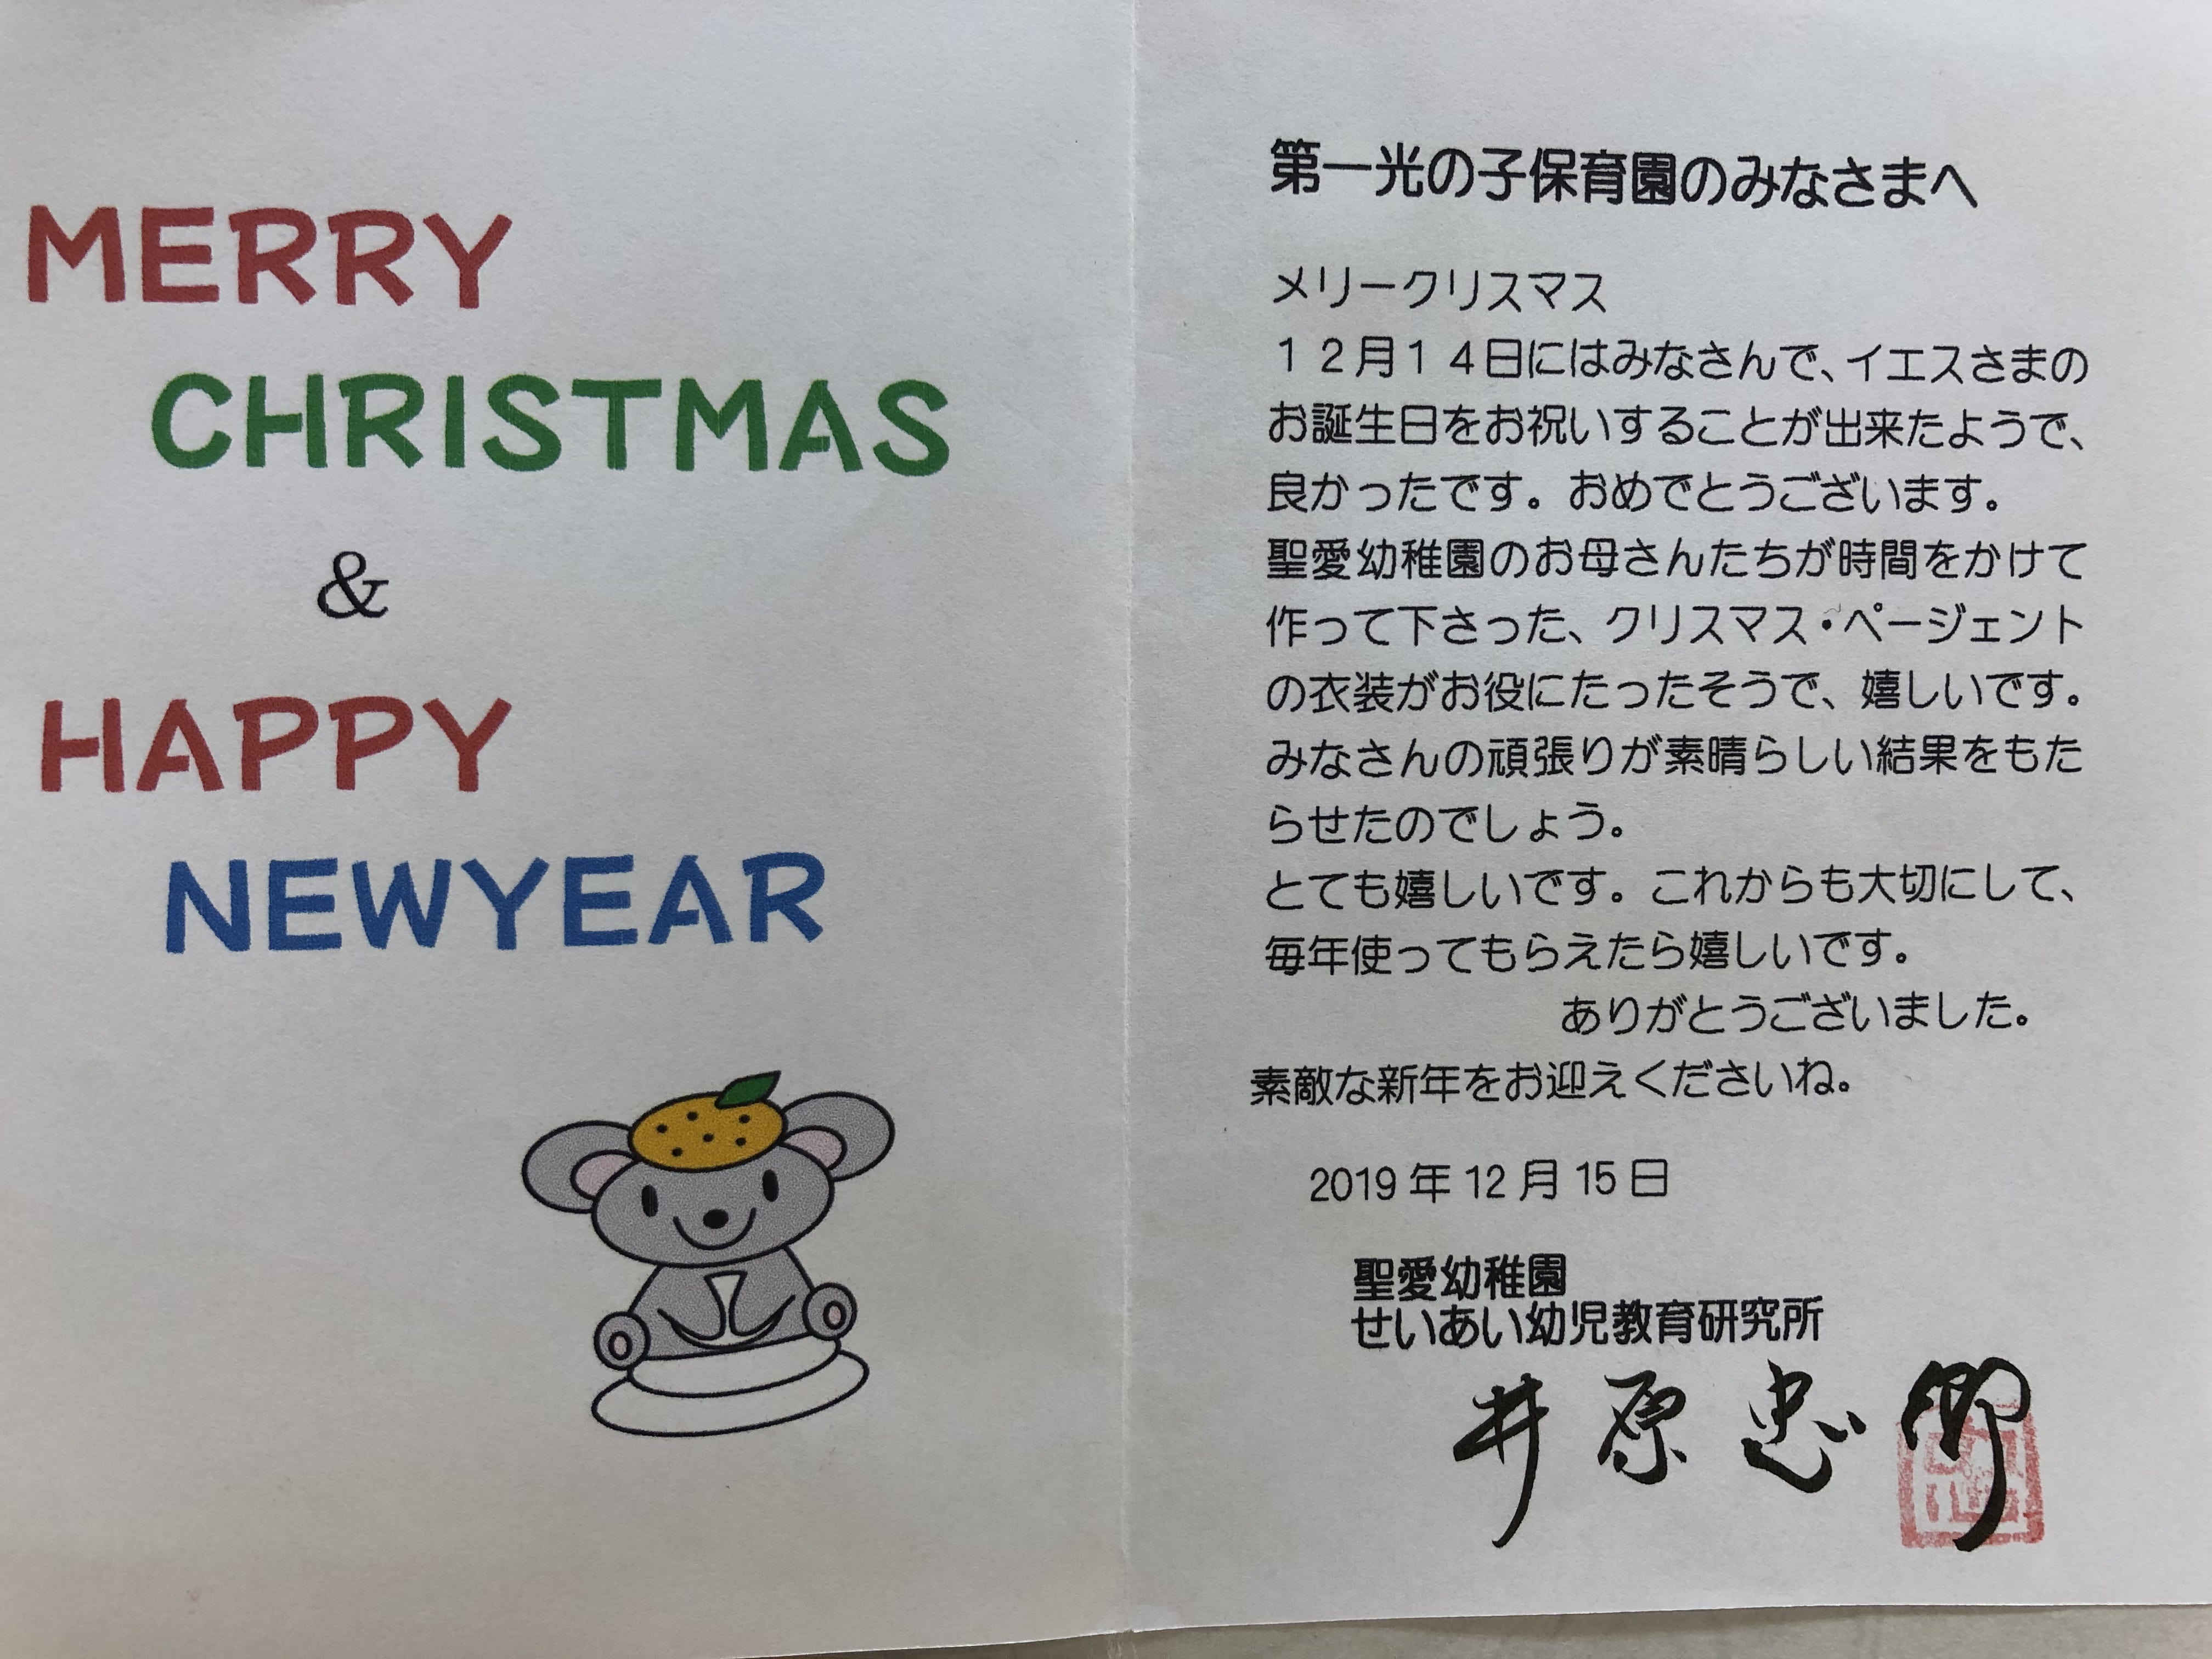 MERRY
CHRISTMAS
&
HAPPY
NEWYEAR
第一光の子保育園のみなさまへ
メリークリスマス
１２月１４日にはみなさんで、イエスさまの
お誕生日をお祝いすることが出来たようで、
良かったです。おめでとうございます。
聖愛幼稚園のお母さんたちが時間をかけて
作って下さった、クリスマス・ページェント
の衣装がお役にたったそうで、嬉しいです。
みなさんの頑張りが素晴らしい結果をもた
らせたのでしょう。
とても嬉しいです。これからも大切にして、
毎年使ってもらえたら嬉しいです。
ありがとうございました。
素敵な新年をお迎えくださいね。
2019 年 12 月 15 日
聖愛幼稚園
せいあい幼児教育研究所
井原忠郷